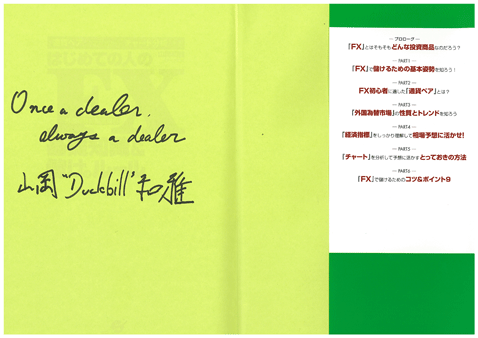 Once a dealer,
always a dealer
山岡 "Duckbill" 和雅
— プロローグ —
「FX」とはそもそもどんな投資商品なのだろう?
— PART1 —
「FX」で儲けるための基本姿勢を知ろう!
— PART2 —
FX初心者に適した「通貨ペア」とは?
— PART3 —
「外国為替市場」の性質とトレンドを知ろう
— PART4 —
「経済指標」をしっかり理解して相場予想に活かせ!
— PART5 —
「チャート」を分析して予想に活かすとっておきの方法
— PART6 —
「FX」で儲けるためのコツ&ポイント9